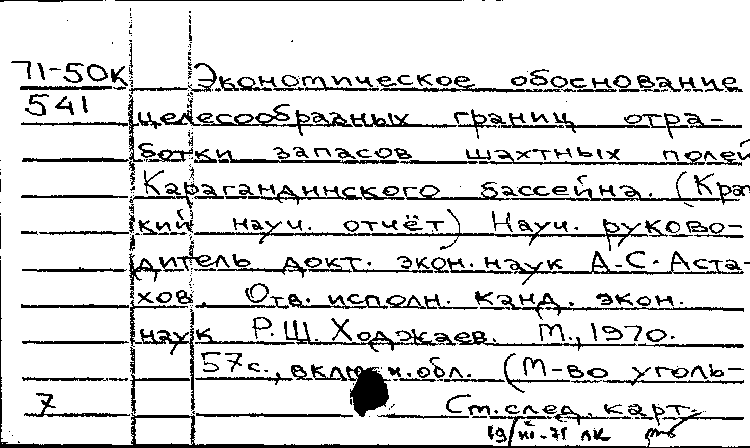 71-50к Экономическое обоснование
541 целесообразных границ отра-
ботки запасов шахтных полей
Карагандинского бассейна. (Крат
кий науч. отчёт) Науч. руково-
дитель докт. экон. наук А.С. Аста-
хов. Отв. исполн. канд. экон.
наук Р.Ш. Ходжаев. М., 1970.
57с., включ.обл. (М-во уголь-
7 См.след. карт.
19/III-71 лк